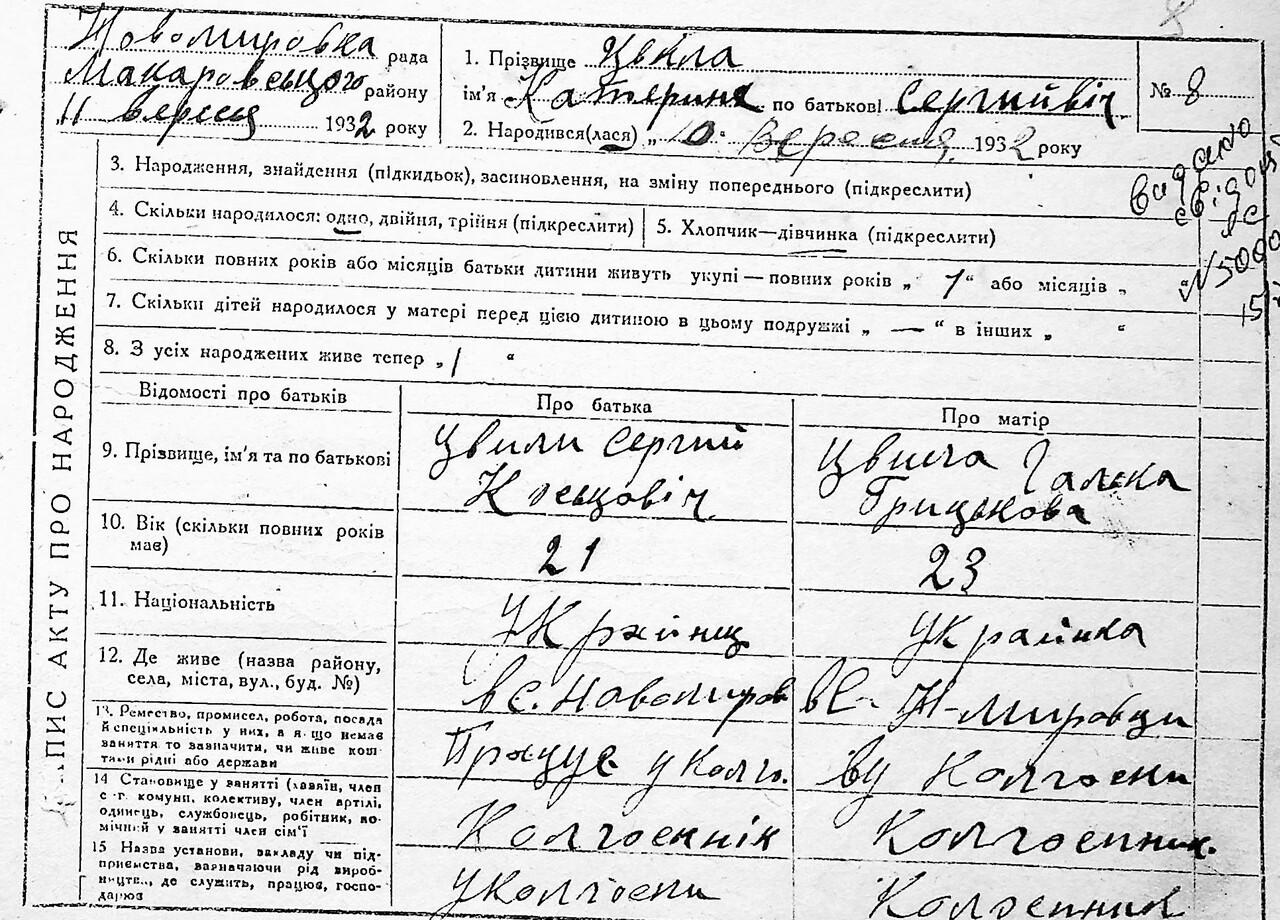 Новомировка рада
Макаровського району
11 вересня 1932 року
1. Прізвище Цвила
ім'я Катерина по батькові Сергийвіч
2. Народився(лася) „10 Вересня 1932 року
№ 8
3. Народження, знайдення (підкидьок), засиновлення, на зміну попереднього (підкреслити)
4. Скільки народилося: одно, двійня, трійня (підкреслити)
5. Хлопчик—дівчинка (підкреслити)
6. Скільки повних років або місяців батьки дитини живуть укупі — повних років „ 1 “ або місяців „ “
7. Скільки дітей народилося у матері перед цією дитиною в цьому подружжі „ — “ в інших „ “
8. З усіх народжених живе тепер „ 1 “
видано
№ 5000
15
ПИС АКТУ ПРО НАРОДЖЕННЯ
Відомості про батьків
Про батька
Про матір
9. Прізвище, ім'я та по батькові
Цвили Сергий
Цвила Галька
Грицькова
10. Вік (скільки повних років
має)
21
23
11. Національність
Украйнец
Украйнка
12. Де живе (назва району,
села, міста, вул., буд. №)
в с. Новомиров
в с. Н-мировци
13. Ремество, промисел, робота, посада
й спеціяльність у них, а якщо немає
заняття то зазначити, чи живе кош
тами рідні або держави
Працує у Колго.
ву Колгоспи
14 Становище у занятті (хазяїн, член
с.-г. комуни, колективу, член артілі,
одинець, службовець, робітник, по-
мічний у занятті член сім'ї
Колгоспнік
Колгоспник.
15 Назва установи, закладу чи під-
приємства, зазначаючи рід вироб-
ництв., де служить, працює, госпо-
дарює
у колгоспи
Колгоспник